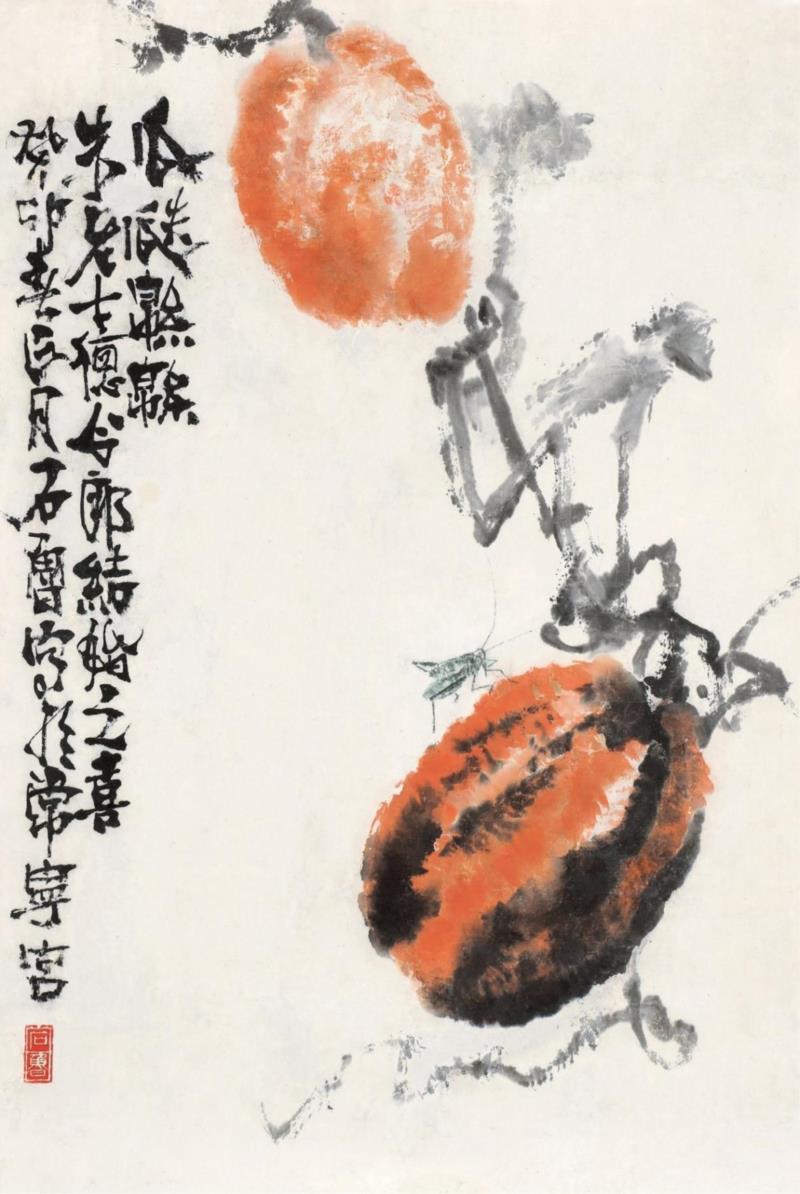 瓜瓞緜緜
朱老士德令郎結婚之喜
癸卯春正月石魯写於常寧宮
石魯